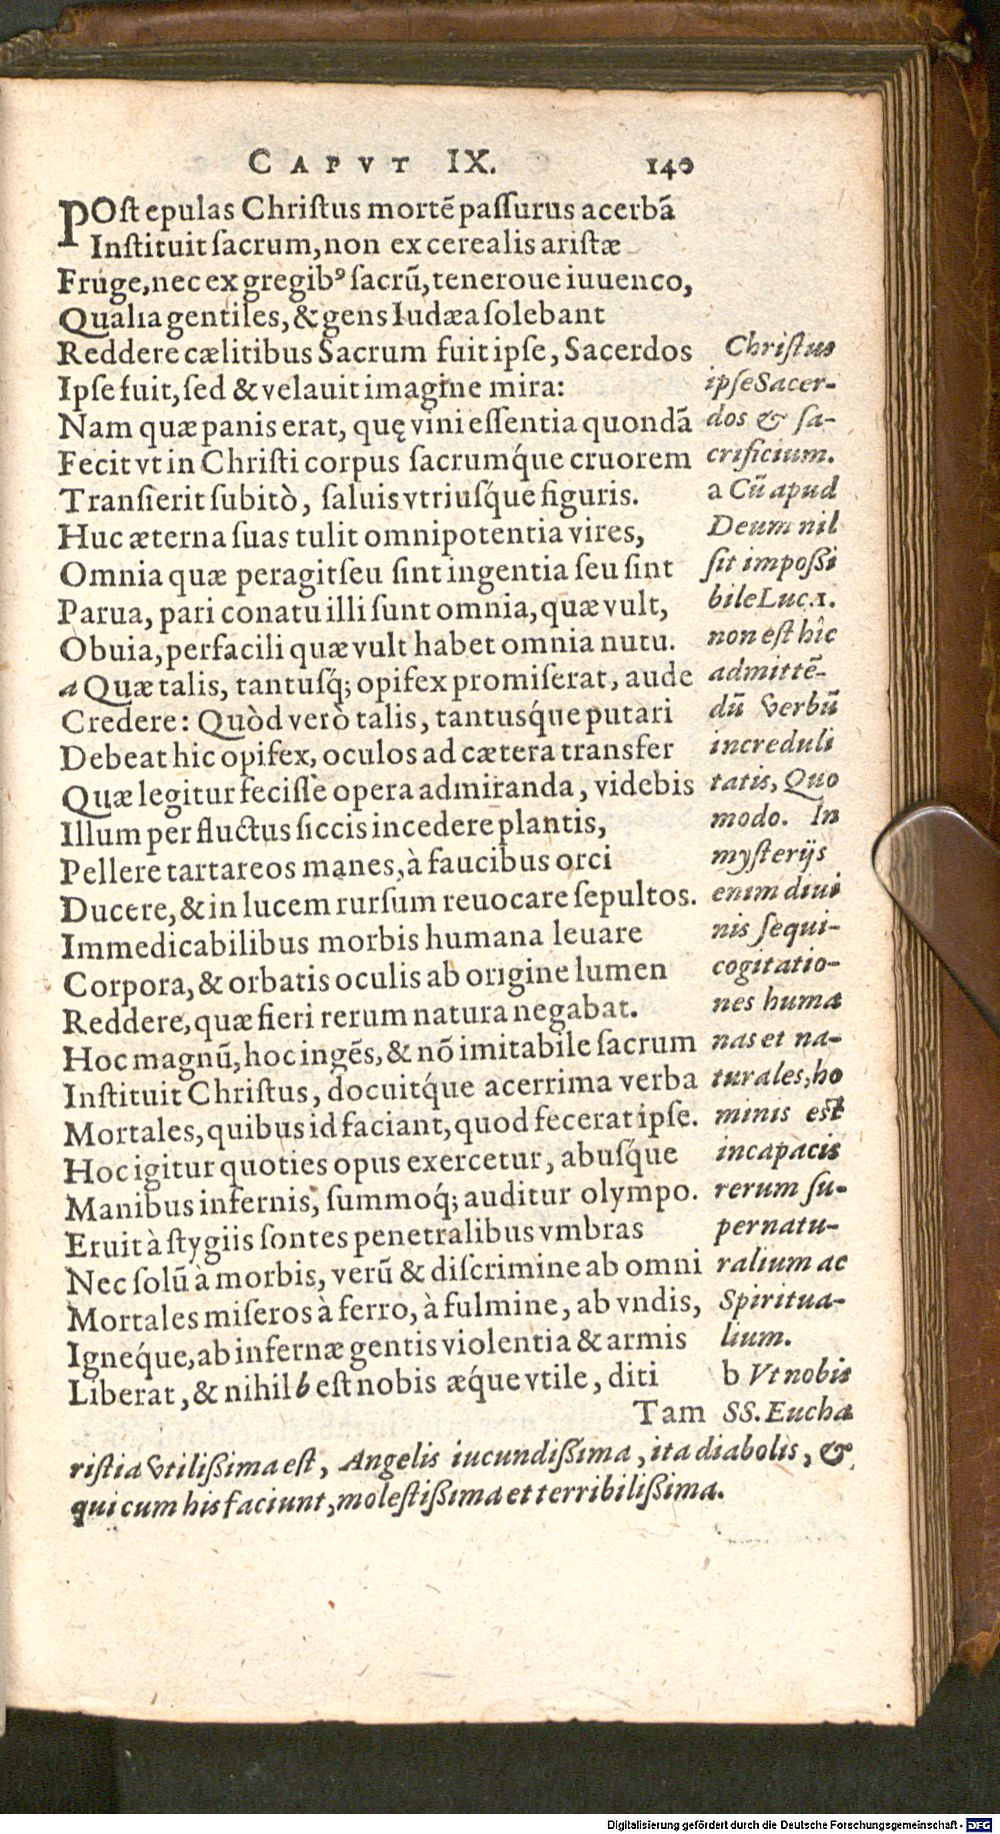 CAPVT IX. 140
POſt epulas Chriſtus mortē paſſurus acerbā
Inſtituit ſacrum, non ex cerealis ariſtæ
Fruge, nec ex gregibꝰ ſacrū, teneroue iuuenco,
Qualia gentiles, & gens Iudæa ſolebant
Reddere cælitibus Sacrum fuit ipſe, Sacerdos
Ipſe fuit, ſed & velauit imagine mira:
Nam quæ panis erat, quę vini eſſentia quondā
Fecit vt in Chriſti corpus ſacrumq́ue cruorem
Tranſierit ſubitò, ſaluis vtriuſq́ue figuris.
Huc æterna ſuas tulit omnipotentia vires,
Omnia quæ peragit ſeu ſint ingentia ſeu ſint
Parua, pari conatu illi ſunt omnia, quæ vult,
Obuia, perfacili quæ vult habet omnia nutu.
a Quæ talis, tantuſq́; opifex promiſerat, aude
Credere: Quòd verò talis, tantusq́ue putari
Debeat hic opifex, oculos ad cætera transfer
Quæ legitur feciſſe opera admiranda, videbis
Illum per fluctus ſiccis incedere plantis,
Pellere tartareos manes, à faucibus orci
Ducere, & in lucem rurſum reuocare ſepultos.
Immedicabilibus morbis humana leuare
Corpora, & orbatis oculis ab origine lumen
Reddere, quæ fieri rerum natura negabat.
Hoc magnū, hoc ingēs, & nō imitabile ſacrum
Inſtituit Chriſtus, docuitq́ue acerrima verba
Mortales, quibus id faciant, quod fecerat ipſe.
Hoc igitur quoties opus exercetur, abuſq́ue
Manibus infernis, ſummoq́; auditur olympo.
Eruit à ſtygiis ſontes penetralibus vmbras
Nec ſolū à morbis, verū & diſcrimine ab omni
Mortales miſeros à ferro, à fulmine, ab vndis,
Igneq́ue, ab infernæ gentis violentia & armis
Liberat, & nihil b eſt nobis æq́ue vtile, diti
Tam
Chriſtus
ipſe Sacer-
dos & ſa-
crificium.
a Cū apud
Deum nil
ſit impoßi
bile Luc.1.
non eſt hîc
admittē-
dū verbū
increduli
tatis, Quo
modo. In
myſterijs
enim diui
nis ſequi-
cogitatio-
nes huma
nas et na-
turales, ho
minis eſt
incapacis
rerum ſu-
pernatu-
ralium ac
Spiritua-
lium.
b Vt nobis
SS. Eucha
riſtia vtilißima eſt, Angelis iucundißima, ita diabolis, &
qui cum his faciunt, moleſtißima et terribilißima.
Digitalisierung gefördert durch die Deutsche Forschungsgemeinschaft - DFG